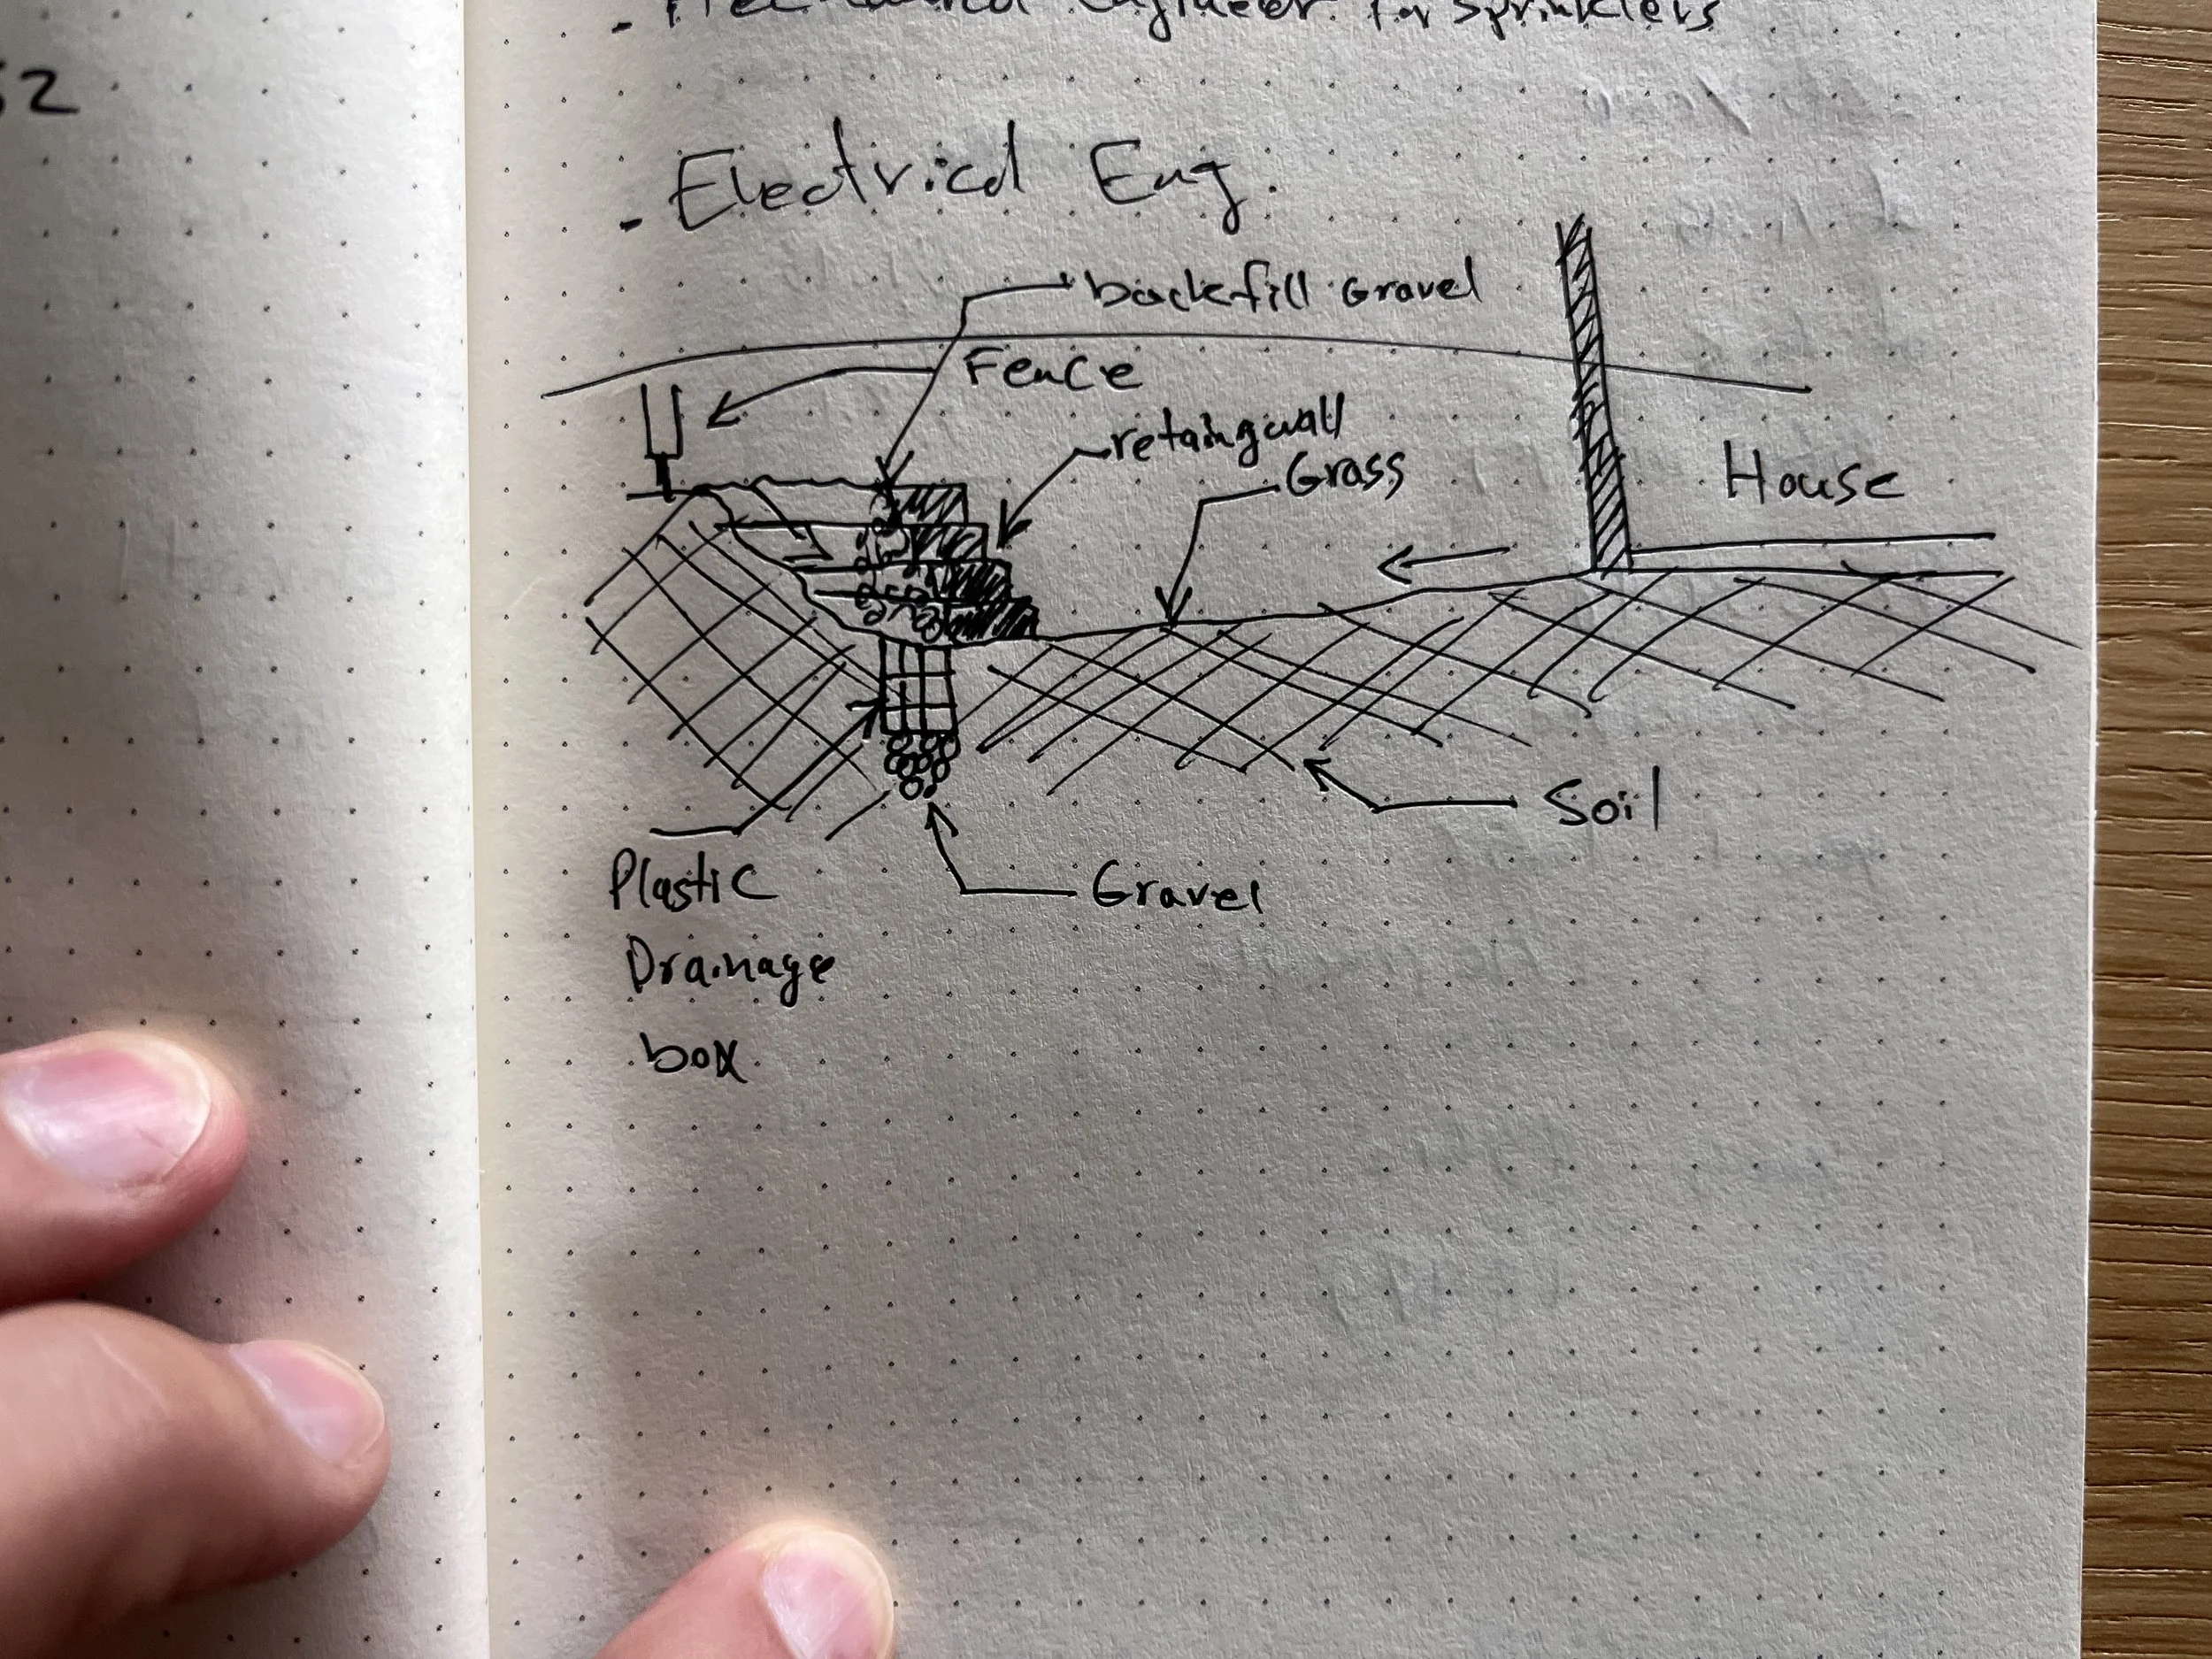 - Mechanical Engineer for Sprinklers
52
- Electrical Eng.
backfill Gravel
Fence
retaingwall
Grass
House
Soil
Plastic
Gravel
Drainage
box